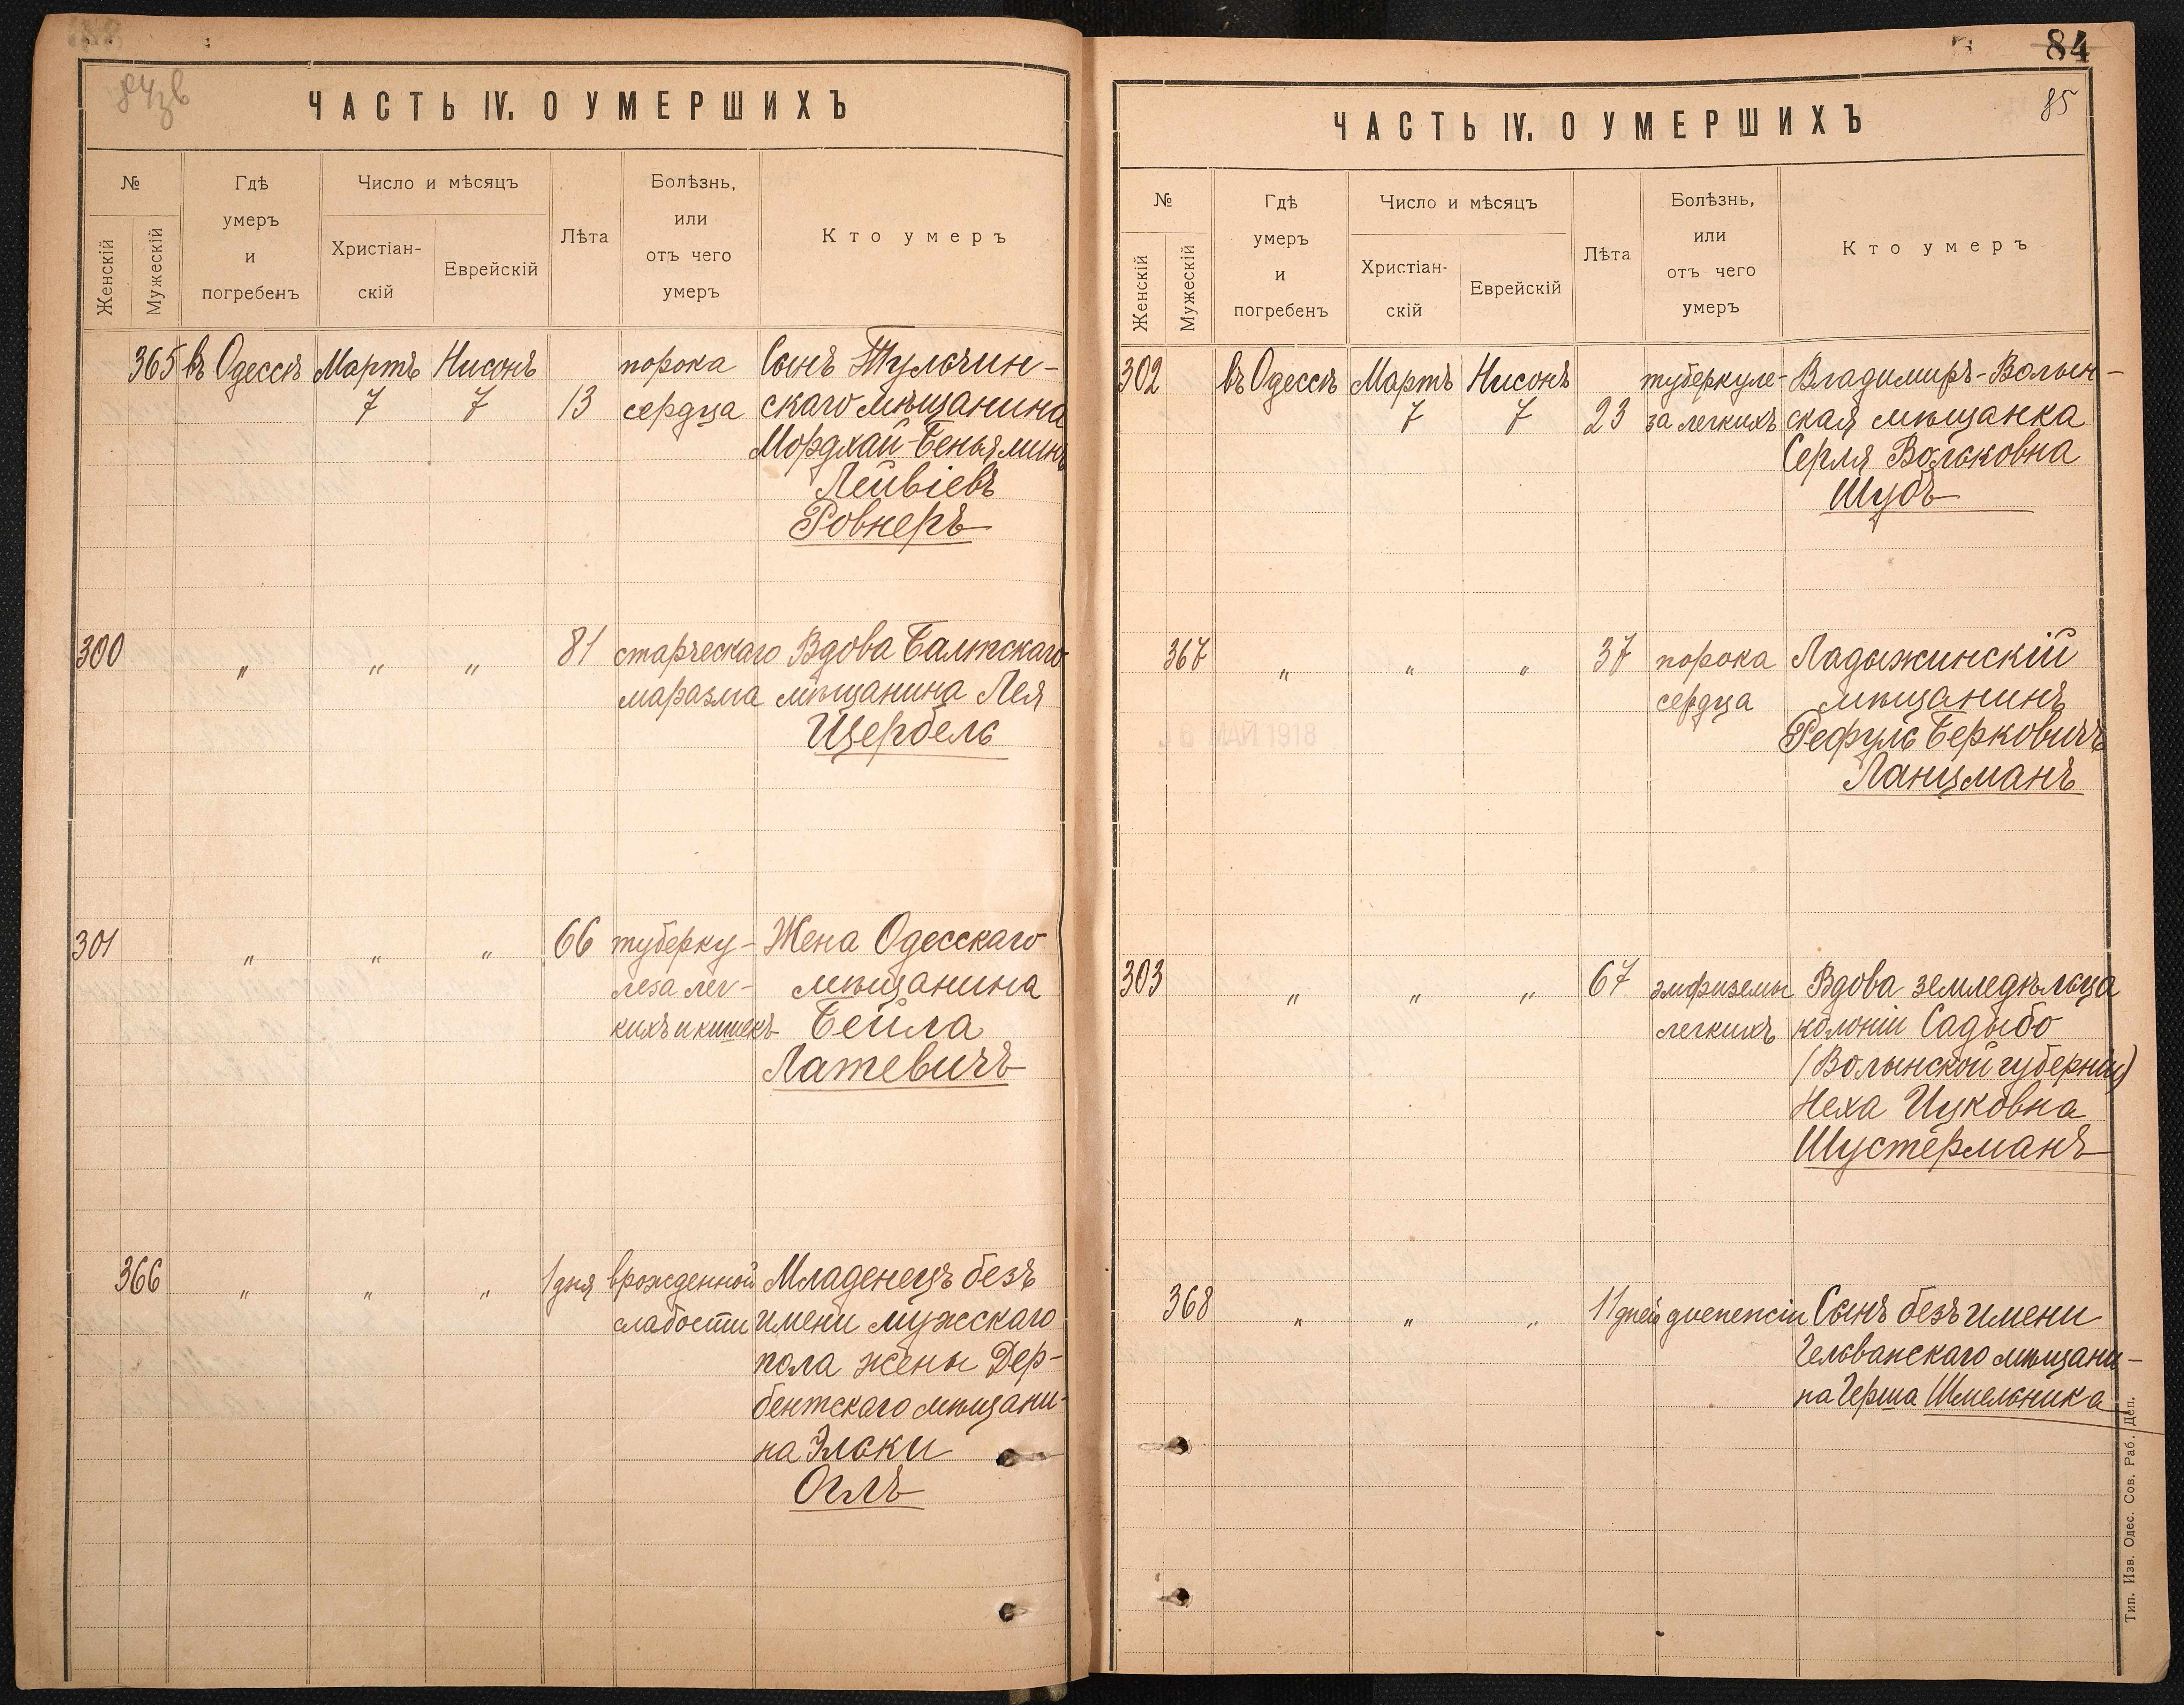 ЧАСТЬ IV. О УМЕРШИХЪ
№
Женскій
Мужескій
Гдѣ
умеръ
и
погребенъ
Число и мѣсяцъ
Христіан-
скій
Еврейскій
Лѣта
Болѣзнь,
или
отъ чего
умеръ
Кто умеръ
365 въ Одессѣ Мартъ Нисонъ порока Сынъ Тульчин-
7 7 13 сердца скаго мѣщанина
Мордхай-Беньяминъ
Лейвіевъ
Ровнеръ
300 " " " 81 старческаго Вдова Балтскаго
маразма мѣщанина Лея
Щербель
301 " " " 66 туберку- Жена Одесскаго
леза лег- мѣщанина
кихъ и кишекъ Бейла
Латевичъ
366 " " " 1 дня врожденной Младенецъ безъ
слабости имени мужскаго
пола жены Дер-
бентскаго мѣщани-
на Эльки
Оглъ
84
85
ЧАСТЬ IV. О УМЕРШИХЪ
№
Женскій
Мужескій
Гдѣ
умеръ
и
погребенъ
Число и мѣсяцъ
Христіан-
скій
Еврейскій
Лѣта
Болѣзнь,
или
отъ чего
умеръ
Кто умеръ
302 въ Одессѣ Мартъ Нисонъ туберкуле- Владимиръ-Волын-
7 7 23 за легкихъ ская мѣщанка
Серля Вольковна
Шубъ
367 " " " 37 порока Ладыжинскій
сердца мѣщанинъ
Рефуль Берковичъ
Ланцманъ
МАЙ 1918
303 " " " 67 эмфиземы Вдова земледѣльца
легкихъ колоніи Садыбо
(Волынской губерніи)
Неха Ицковна
Шустерманъ
368 " " " 11 дней диспепсіи Сынъ безъ имени
Тельванскаго мѣщани-
на Герша Шмельника
Тип. Изв. Одес. Сов. Раб. Деп.